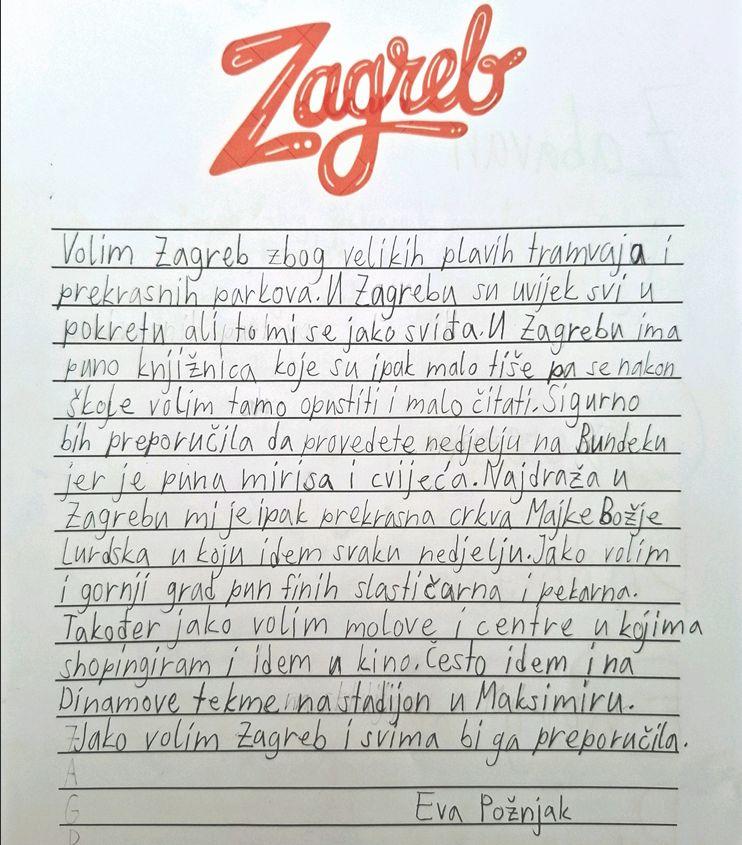 Zagreb
Volim Zagreb zbog velikih plavih tramvaja i
prekrasnih parkova. U Zagrebu su uvijek svi u
pokretu ali to mi se jako sviđa. U Zagrebu ima
puno knjižnica koje su ipak malo tiše pa se nakon
škole volim tamo opustiti i malo čitati. Sigurno
bih preporučila da provedete nedjelju na Bundeku
jer je puna mirisa i cvijeća. Najdraža u
Zagrebu mi je ipak prekrasna crkva Majke Božje
Lurdska u koju idem svaku nedjelju. Jako volim
i gornji grad pun finih slastičarna i pekarna.
Također jako volim molove i centre u kojima
shopingiram i idem u kino. Često idem i na
Dinamove tekme na stadijon u Maksimiru.
Jako volim Zagreb i svima bi ga preporučila.
Eva Požnjak